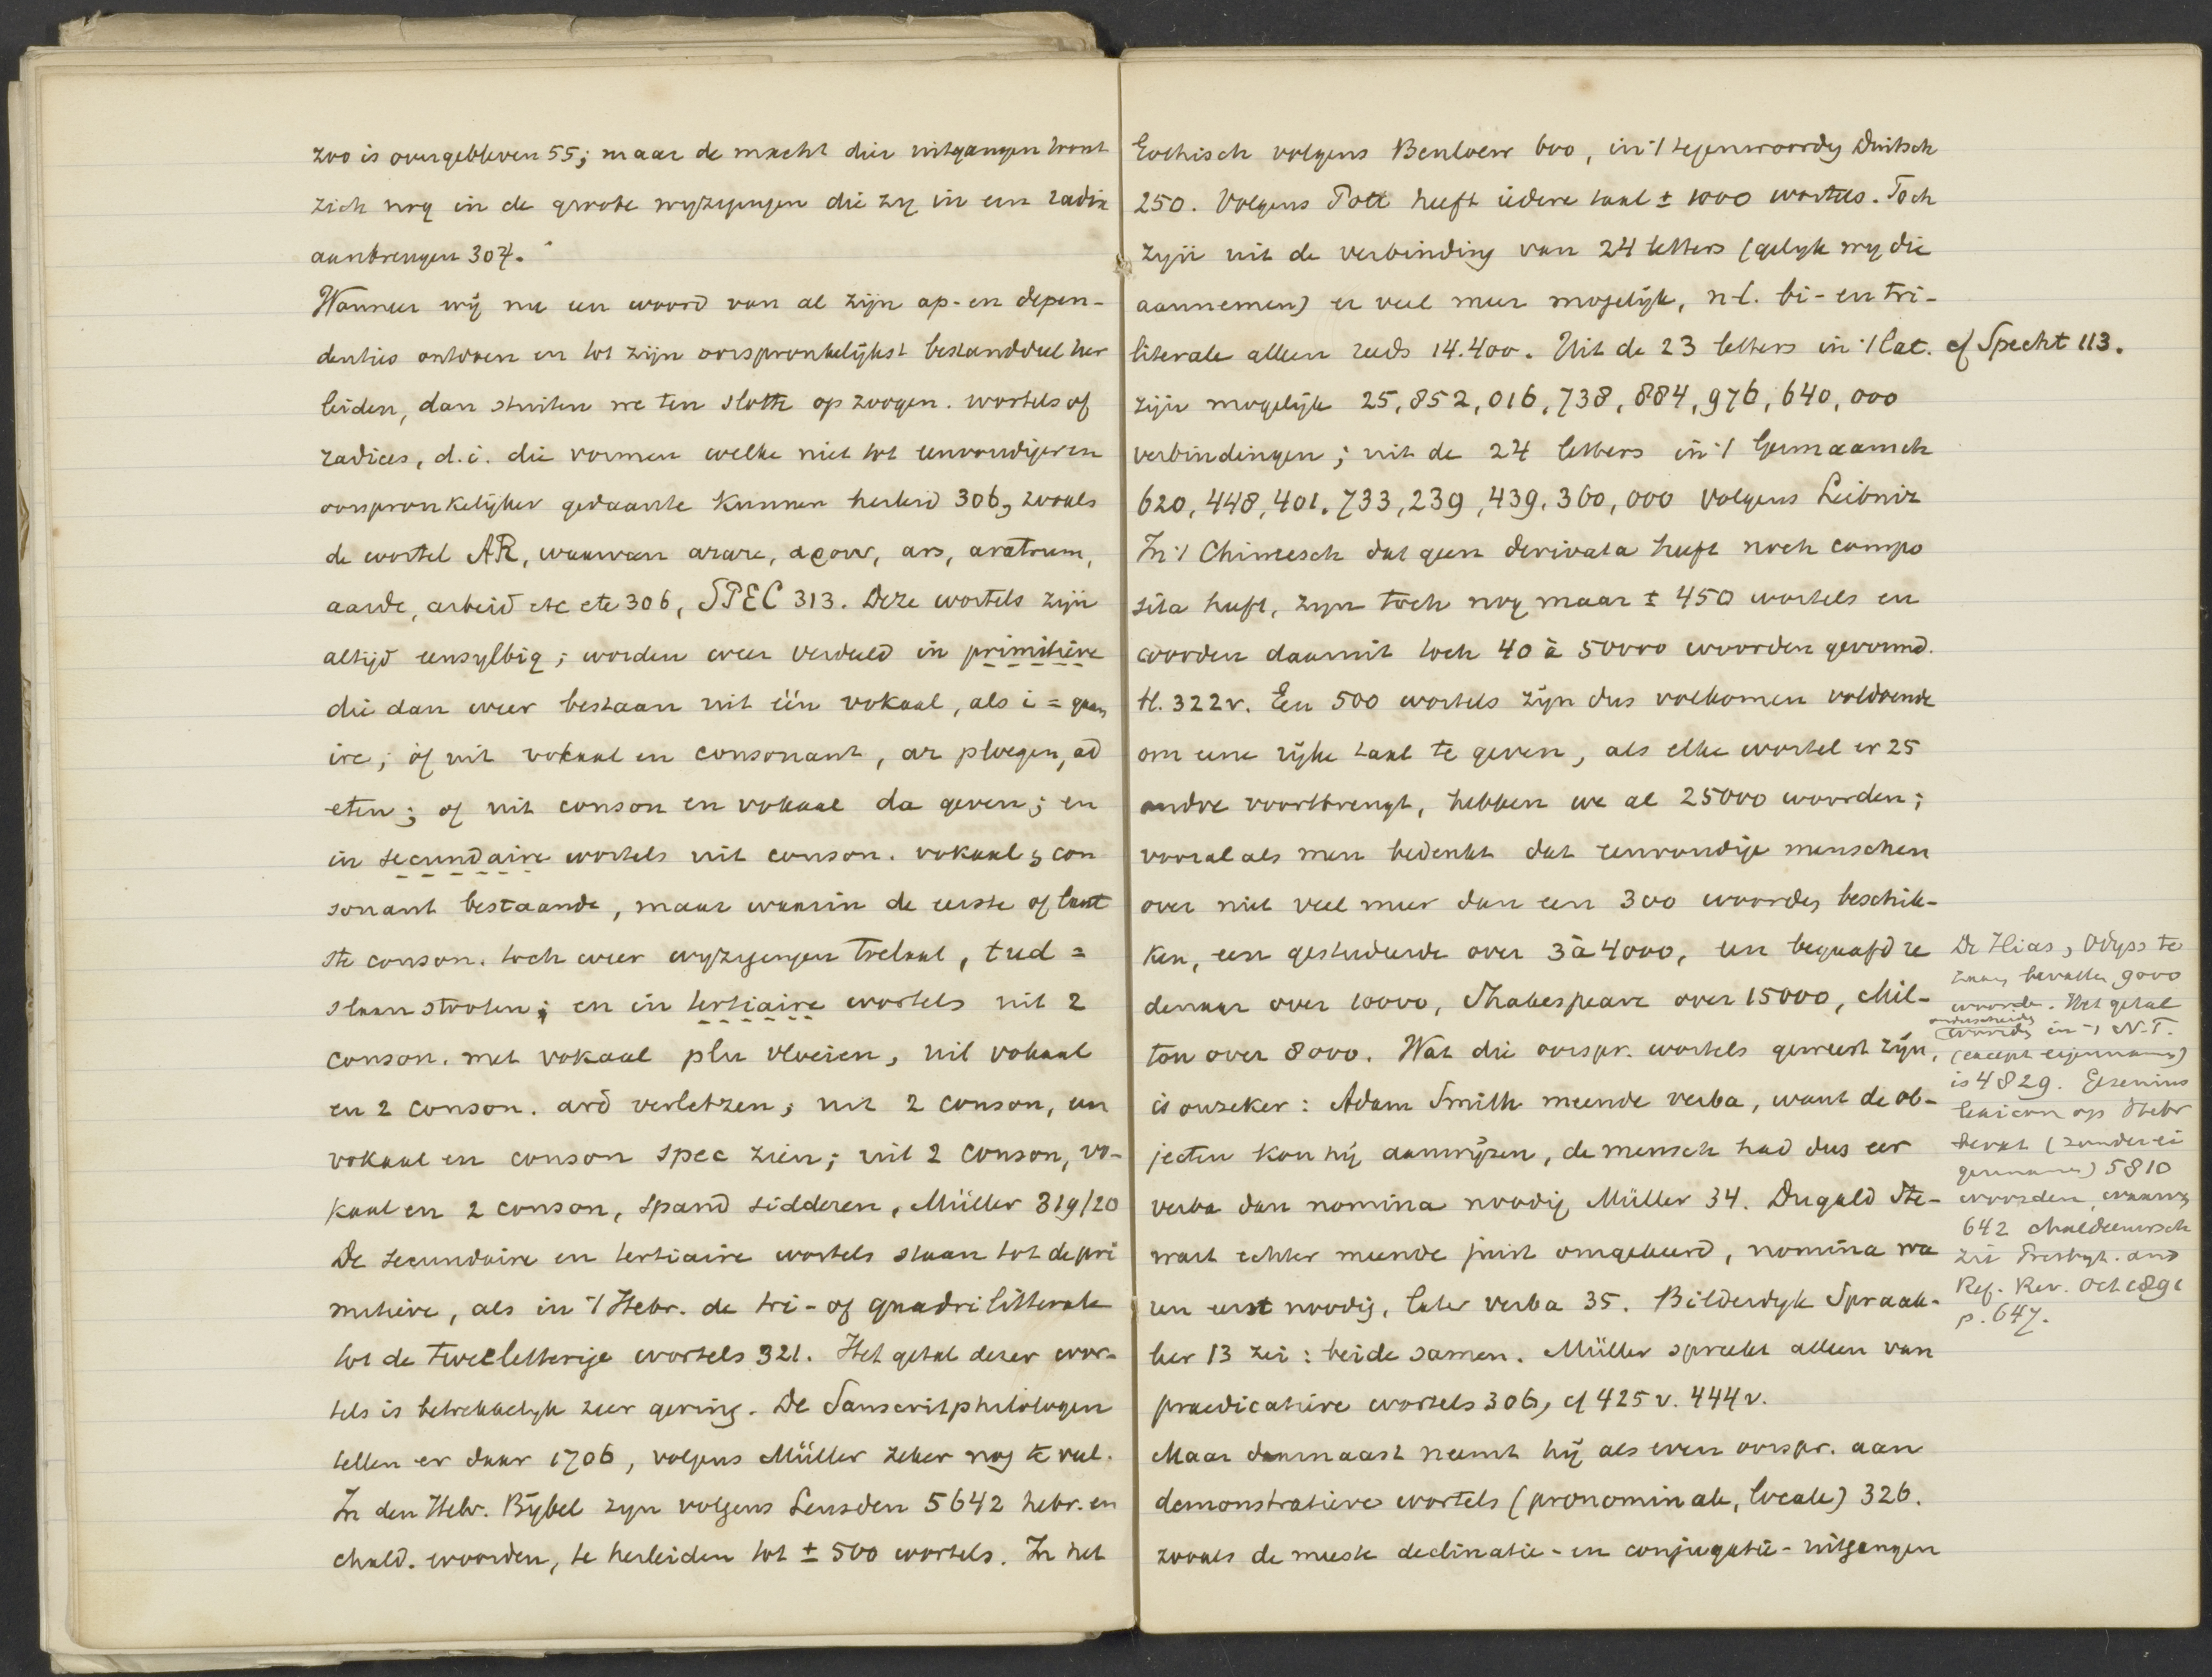 zoo is overgebleven 55; maar de macht dier uitgangen toont
zich nog in de groote wyzigingen die zy in een radix
aanbrengen 307.
Wanneer wij nu een woord van al zijn ap- en depen-
denties ontdoen en tot zijn oorspronkelijkst bestanddeel her
leiden, dan stuiten we ten slotte op zoogen. wortels of
radices, d.i. die vormen welke niet tot eenvoudiger en
oorspronkelijker gedaante kunnen herleid 306, zooals
de wortel AR, waarvan arare, αρουν, ars, aratrum,
aarde, arbeid etc etc 306, SPEC 313. Deze wortels zijn
altijd eensylbig; worden weer verdeeld in primitieve
die dan weer bestaan uit één vokaal, als i = gaan,
ire; òf uit vokaal en consonant, ar ploegen, ad
eten; of uit conson en vokaal da geven; en
in secundaire wortels uit conson. vokaal, con
sonant bestaande, maar waarin de eerste of laat
ste conson. toch weer wyzigingen toelaat, tud =
slaan stooten; en in tertiaire wortels uit 2
conson. met vokaal plu vloeien, uit vokaal
en 2 conson. ard verletzen; uit 2 conson, een
vokaal en conson spec zien; uit 2 conson, vo-
kaal en 2 conson, spand sidderen, Müller 319/20
De secundaire en tertiaire wortels staan tot de pri
mitieve, als in 't Hebr. de tri- of quadrilitterale
tot de tweeletterige wortels 321. Het getal dezer wor-
tels is betrekkelyk zeer gering. De Sanscritphilologen
tellen er daar 1706, volgens Müller zeker nog te veel.
In den Hebr. Bybel zyn volgens Leusden 5642 hebr. en
chald. woorden, te herleiden tot ± 500 wortels. In het
Gothisch volgens Benloew 600, in 't tegenwoordig Duitsch
250. Volgens Pott heeft iedere taal ± 1000 wortels. Toch
zijn uit de verbinding van 24 letters (gelyk wy die
aannemen) er veel meer mogelijk, n-l. bi- en tri-
literale alleen reeds 14.400. Uit de 23 letters in 't Lat. cf Specht 113.
zijn mogelijk 25,852,016,738,884,976,640,000
verbindingen; uit de 24 letters in 't Germaansch
620,448,401.733,239,439.360,000 volgens Leibniz
In 't Chineesch dat geen derivata heeft noch compo
sita heeft, zyn toch nog maar ± 450 wortels en
worden daaruit toch 40 à 50000 woorden gevormd.
bl. 322v. Een 500 wortels zijn dus volkomen voldoende
om eene rijke taal te geven, als elke wortel er 25
andre voortbrengt, hebben we al 25000 woorden;
vooral als men bedenkt dat eenvoudige menschen
over niet veel meer dan een 300 woorden beschik-
ken, een gestudeerde over 3 à 4000, een begaafd re
denaar over 10000, Shakespeare over 15000, Mil-
ton over 8000. Wat die oorspr. wortels geweest zijn,
is onzeker: Adam Smith meende verba, want de ob-
jecten kon hij aanwijzen, de mensch had dus eer
verba dan nomina noodig Müller 34. Dugald Ste-
wart echter meende juist omgekeerd, nomina wa
ren eerst noodig, later verba 35. Bilderdyk Spraak-
leer 13 zei: beide samen. Müller spreekt alleen van
praedicatieve wortels 306, cf 425 v. 444 v.
Maar daarnaast neemt hij als even oorspr. aan
demonstratieve wortels (pronominale, locale) 326.
zooals de meeste declinatie- en conjugatie-uitgangen
De Ilias, Odyss te
zaam bevatten 9000
woorden. Het getal
onderscheiden
woorden in 't N.T.
(except eigennamen)
is 4829. Gesenius
lexicon op Hebr
bevat (zonder ei
gennamen) 5810
woorden, waarvan
642 chaldeeuwsch
zie Presbyt. and
Ref. Rev. Oct 1891
p. 647.